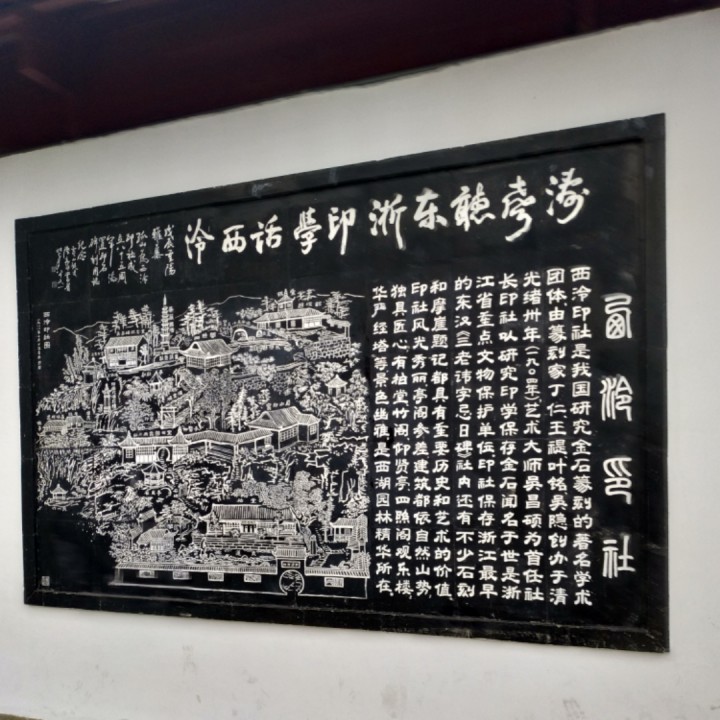 涛声聽东浙印學话西泠
戊辰重阳
雅集
孤山
印社成
立八十五周
纪念
西泠印社
西泠印社是我国研究金石篆刻的著名学术
团体.由篆刻家丁仁王禔叶铭吴隐创办于清
光绪卅年(一八〇四年)艺术大师吴昌硕为首任社
长印社以研究印学保存金石闻名于世是浙
江省重点文物保护单位印社保存浙江最早
的东汉《三老讳字忌日碑》社内还有不少石刻
和摩崖题记都具有重要历史和艺术的价值.
印社风光秀丽亭阁参差建筑都依自然山势.
独具匠心.有柏堂竹阁仰贤亭四照阁观乐楼.
华严经塔等景色幽雅是西湖园林精华所在.
西泠印社图